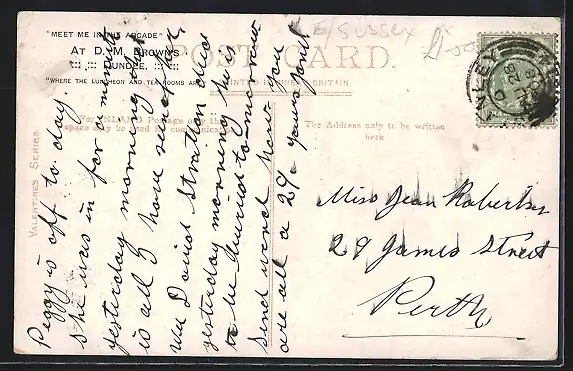 "MEET ME IN THE ARCADE"
AT D. M. BROWN'S
DUNDEE.
"WHERE THE LUNCHEON AND TEA ROOMS ARE
POST CARD.
PRINTED IN GREAT BRITAIN.
E/SUSSEX
For INLAND Postage only this
space may be used for communication
The Address only to be written
here
VALENTINES SERIES
Peggy is off to day.
She was in for a minute
yesterday morning that
is all I have seen of her
David Stratton died
yesterday morning he is
to be buried to-morrow
Send word how you
are all a 29 yours
Miss Jean Robertson
29 James Street
Perth